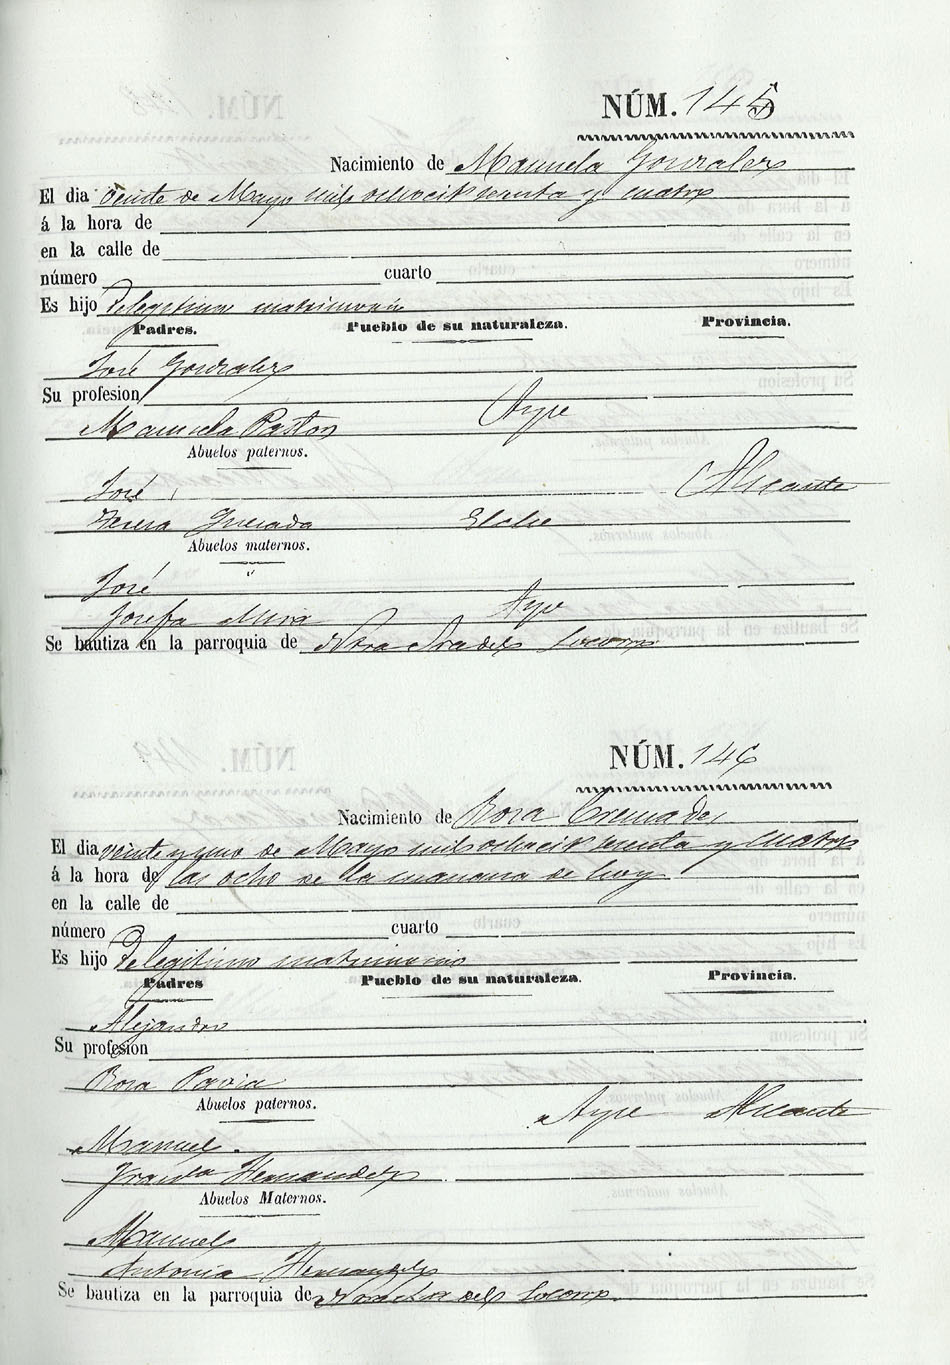 NÚM. 145
Nacimiento de Manuela Gonzalez
El dia veinte de Mayo mil ochoct setenta y cuatro
á la hora de
en la calle de
número cuarto
Es hijo de legitimo matrimonio
Padres. Pueblo de su naturaleza. Provincia.
José Gonzalez
Su profesion
Manuela Pastor Aspe
Abuelos paternos.
José Alicante
Teresa Quesada Elche
Abuelos maternos.
José
Josefa Mira Aspe
Se bautiza en la parroquia de Ntra Sra del Socorro
NÚM. 146
Nacimiento de Rosa Cremades
El dia veinte y uno de Mayo mil ochoct setenta y cuatro
á la hora de las ocho de la manana de hoy
en la calle de
número cuarto
Es hijo de legitimo matrimonio
Padres Pueblo de su naturaleza. Provincia.
Alejandro
Su profesion
Rosa Pavia
Abuelos paternos.
Aspe Alicante
Manuel
Hernandez
Abuelos Maternos.
Manuel
Antonia Hernandez
Se bautiza en la parroquia de Ntra Sra del Socorro